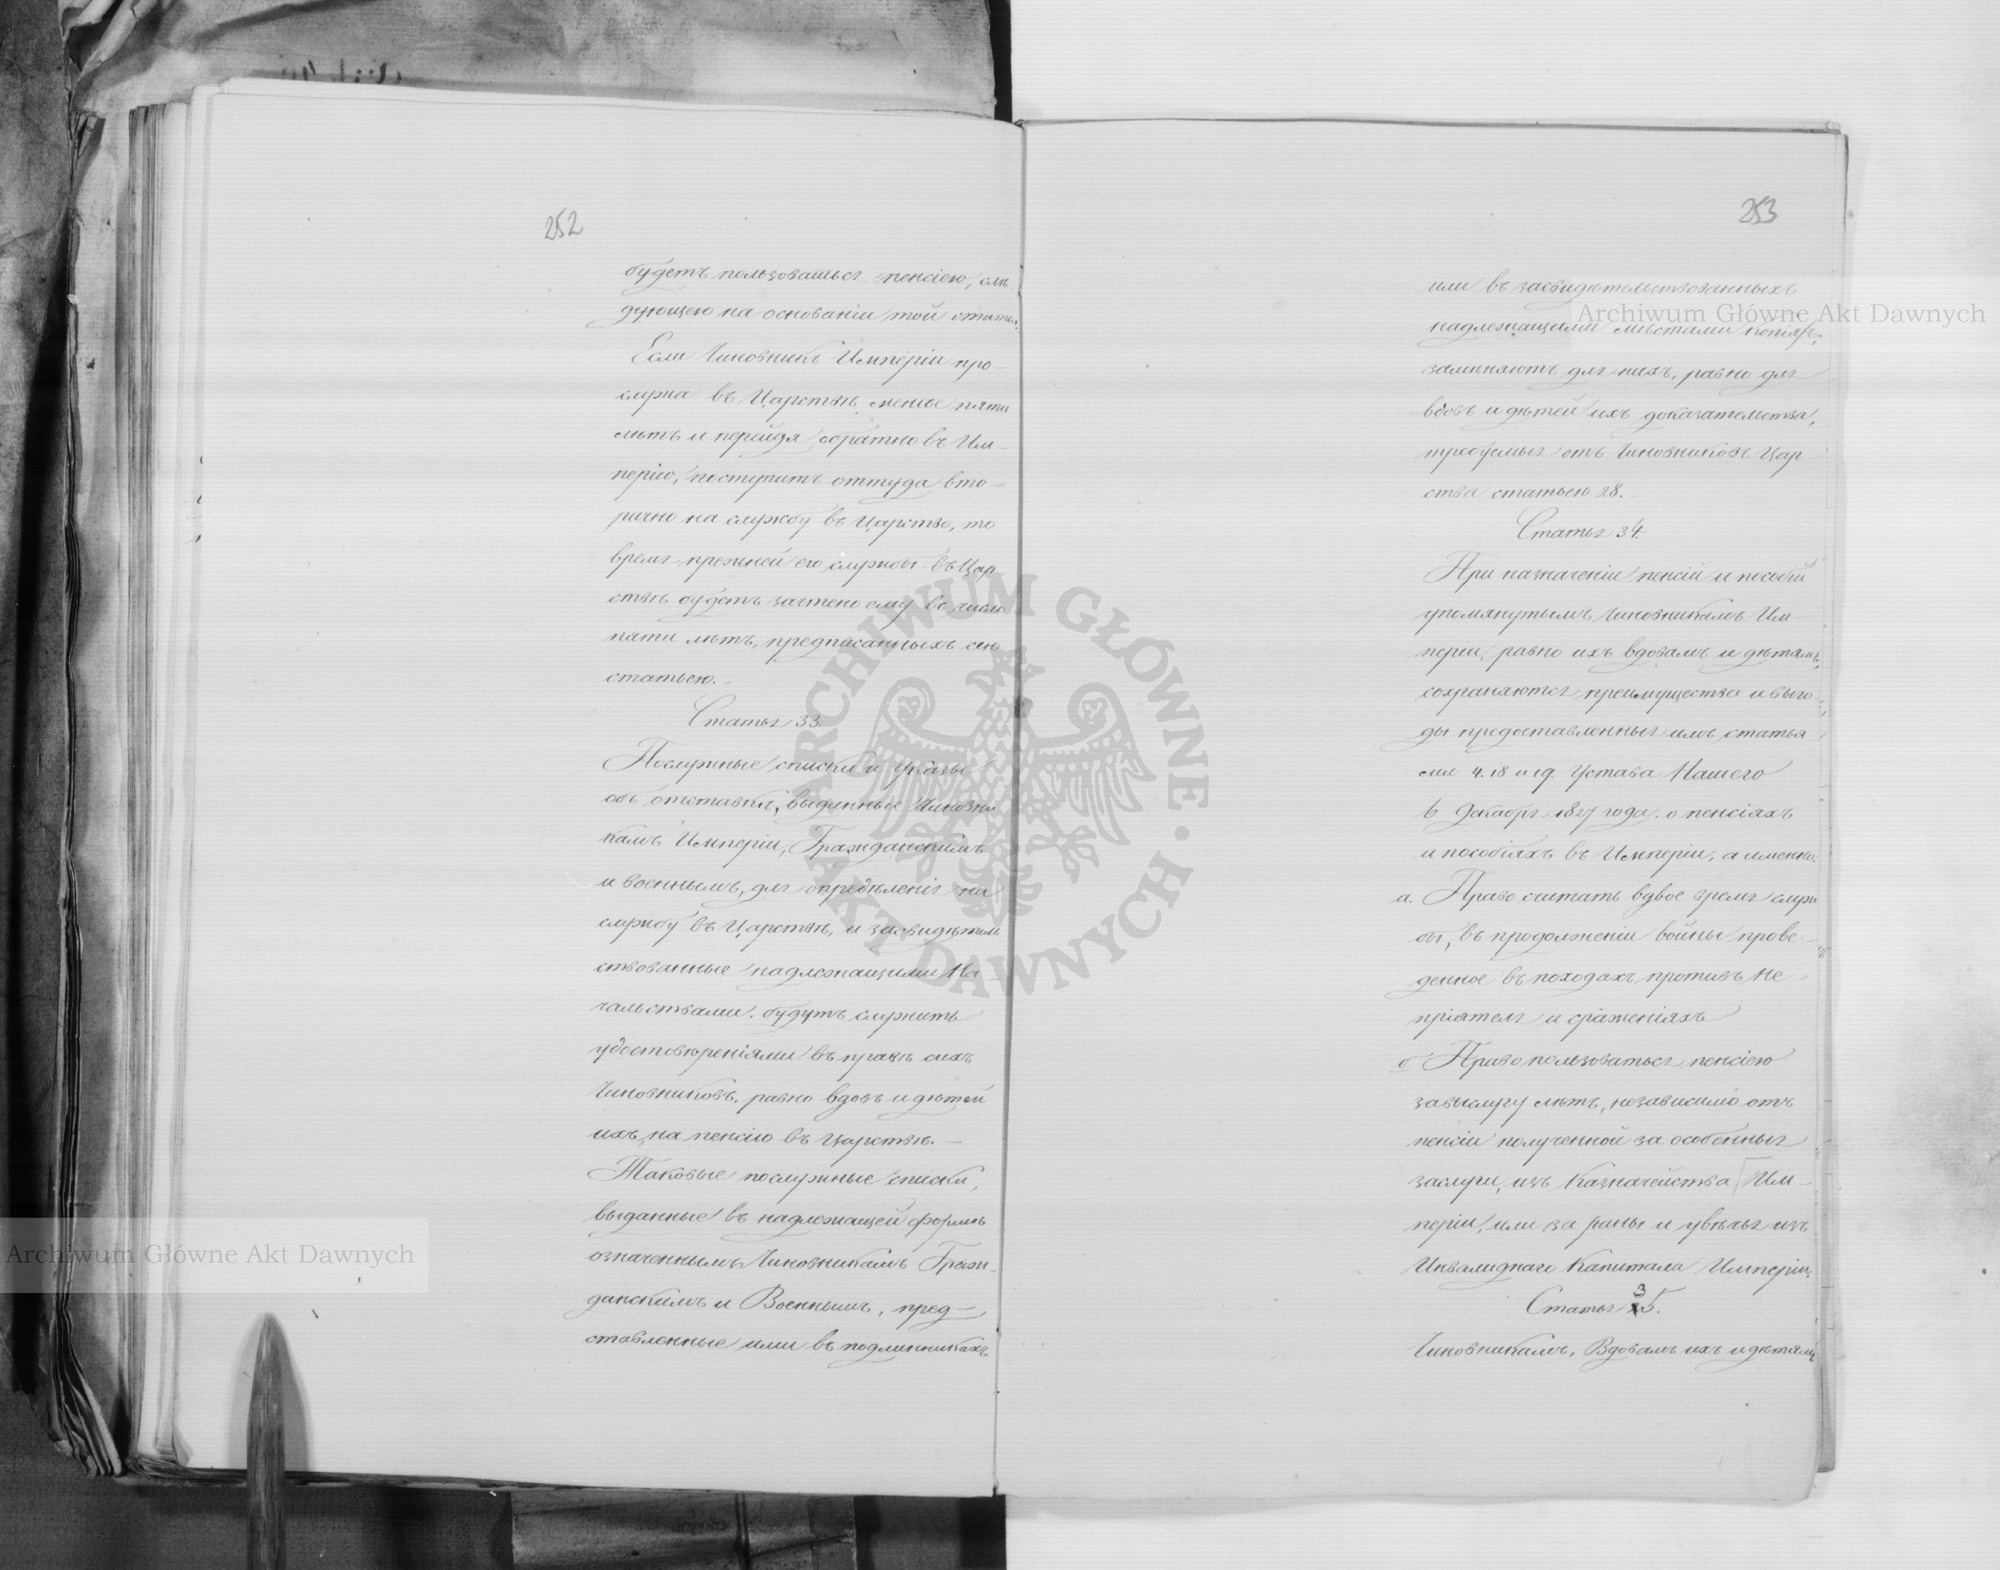 252
будетъ пользоваться пенсіею, слѣ-
дующею на основаніи той статьи.
Если Чиновникъ Имперіи про-
служа въ Царствѣ менѣе пяти
лѣтъ и перейдя обратно въ Им-
перію, поступитъ оттуда вто-
рично на службу въ Царство, то
время прежней его службы въ Цар-
ствѣ будетъ зачтено ему въ число
пяти лѣтъ, предписанныхъ сею
статьею. –
Статья 33.
Послужные списки и указы
объ отставкѣ, выданные Чиновни-
камъ Имперіи, Гражданскимъ
и военнымъ, для опредѣленія на
службу въ Царствѣ, и засвидѣтель
ствованные надлежащими На
чальствами, будутъ служить
удостовѣреніями въ правѣ сихъ
Чиновниковъ, равно вдовъ и дѣтей
ихъ, на пенсію въ Царствѣ. –
Таковые послужные списки,
выданные въ надлежащей формѣ
означеннымъ Чиновникамъ Граж-
данскимъ и Военнымъ, пред-
ставленные или въ подлинникахъ
253
или въ засвидѣтельствованныхъ
надлежащими мѣстами копіяхъ,
замѣняютъ для нихъ, равно для
вдовъ и дѣтей ихъ доказательства,
требуемыя отъ Чиновниковъ Цар-
ства статьею 28.
Статья 34.
При назначеніи пенсій и пособій
упомянутымъ Чиновникамъ Им-
періи, равно ихъ вдовамъ и дѣтямъ,
сохраняются преимущества и выго-
ды предоставленныя имъ статья
ми 4. 18 и 19. Устава Нашего
6 Декабря 1827 года. о пенсіяхъ
и пособіяхъ въ Имперіи, а именно:
а. Право считать вдвое время служ
бы, въ продолженіи войны прове-
денное въ походахъ противъ не-
пріятеля и сраженіяхъ
б Право пользоваться пенсіею
за выслугу лѣтъ, независимо отъ
пенсіи полученной за особенныя
заслуги, изъ Казначейства Им-
періи, или за раны и увѣчья изъ
Инвалиднаго Капитала Имперіи.
Статья 35.
Чиновникамъ, Вдовамъ ихъ и дѣтямъ
Archiwum Główne Akt Dawnych
Archiwum Główne Akt Dawnych
ARCHIWUM GŁÓWNE · AKT DAWNYCH ·